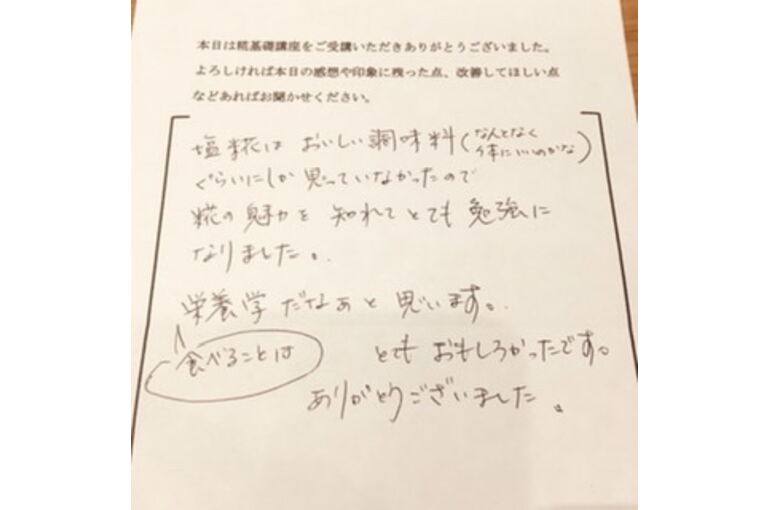 本日は糀基礎講座をご受講いただきありがとうございました。
よろしければ本日の感想や印象に残った点、改善してほしい点
などあればお聞かせください。
塩糀は おいしい調味料(なんとなく体にいいのかな)
ぐらいにしか思っていなかったので
糀の魅力を 知れてとても勉強に
なりました。
栄養学だなぁと思います。
食べることは
とてもおもしろかったです。
ありがとうございました。